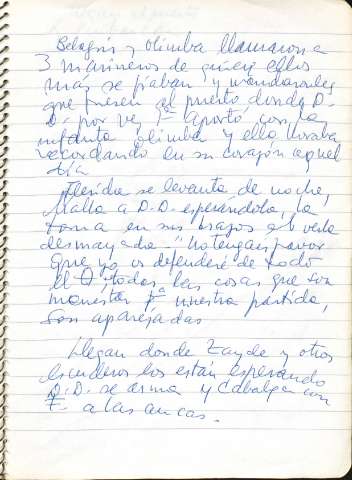 Belagris y Olimba llamaron a
3 marineros de quien ellos
mas se fiaban, y mandaronles
que fuesen al puerto donde D.
D. por vez 1ª aportó con la
infanta Olimba y ella lloraba
recordando en su corazón aquel
día
Fleridia se levanta de noche,
halla a D.D. esperándola, la
toma en sus brazos al verla
desmayada — "no tengais pavor
que yo os defenderé de todo
el", todas las cosas que son
menester pª nuestra partida,
son aparejadas
Llegan donde Zayde y otros
escuderos los están esperando
D.D. se arma y cabalgan con
F. a las ancas.